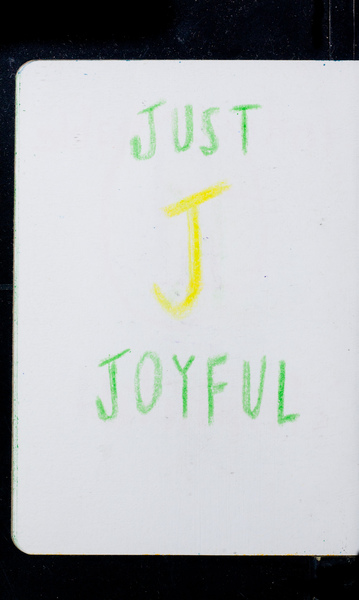 JUST
J
JOYFUL